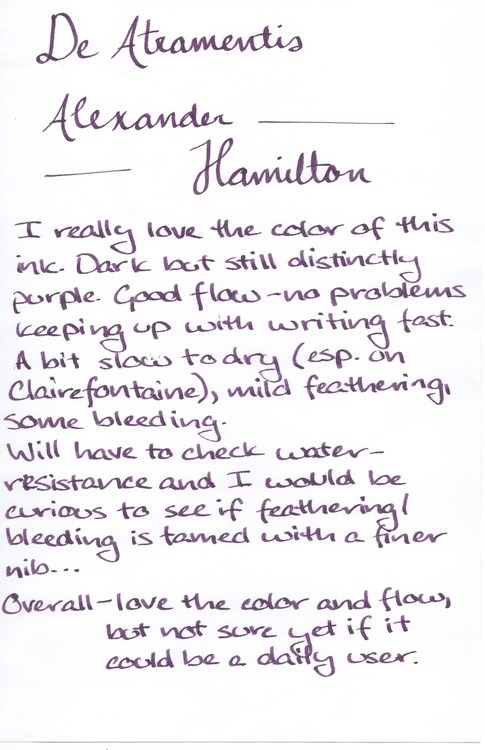 De Atramentis
Alexander
Hamilton
I really love the color of this
ink. Dark but still distinctly
purple. Good flow-no problems
keeping up with writing fast.
A bit slow to dry (esp. on
Clairefontaine), mild feathering,
some bleeding.
Will have to check water-
resistance and I would be
curious to see if feathering/
bleeding is tamed with a finer
nib...
Overall-love the color and flow,
but not sure yet if it
could be a daily user.